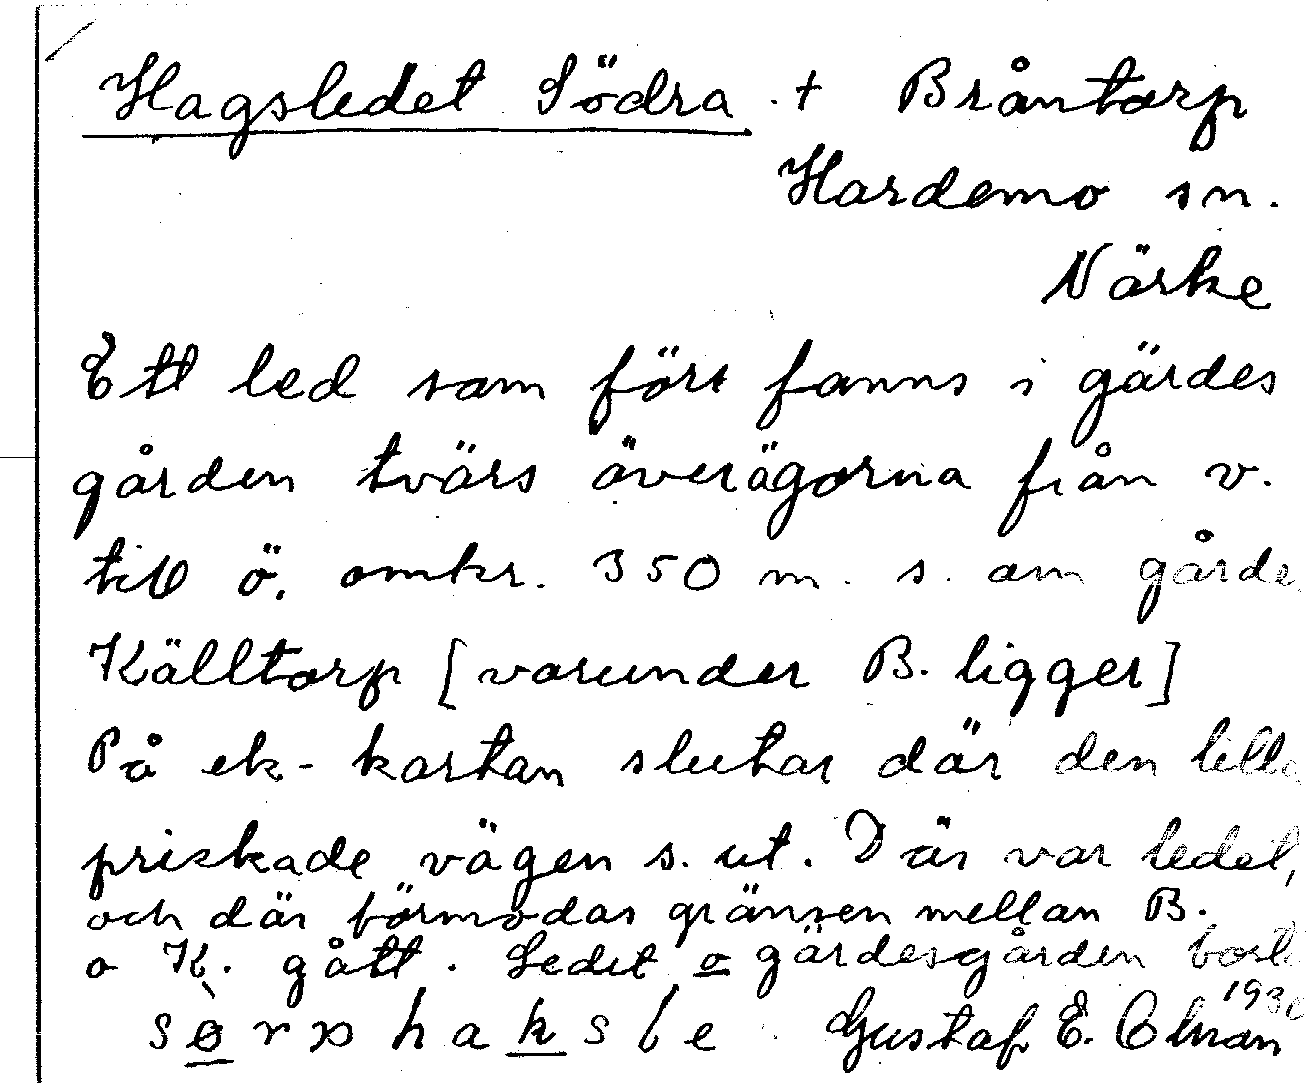 Hagsledet Södra + Bråntorp
Hardemo sn.
Närke
Ett led som förr fanns i gärdes
gården tvärs överägorna från v.
till ö. omkr. 350 m. s. om gårde
Källtorp [varunder B. ligger]
På ek-kartan slutar där den lilla
prickade vägen s. ut. Där var ledet,
och där förmodas gränsen mellan B.
o K. gått. Ledet o gärdesgården bort
193
Gustaf E.